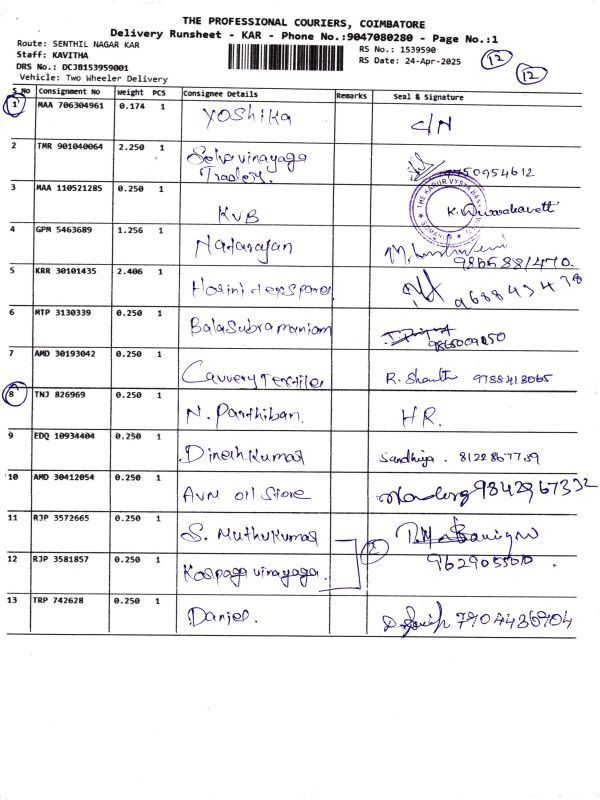 THE PROFESSIONAL COURIERS, COIMBATORE
Delivery Runsheet - KAR - Phone No.:9047080280 - Page No.:1
Route: SENTHIL NAGAR KAR
Staff: KAVITHA
DRS No.: DCJB153959001
Vehicle: Two Wheeler Delivery
RS No.: 1539590
RS Date: 24-Apr-2025
12
12
S No Consignment No Weight PCS Consignee Details Remarks Seal & Signature
1 MAA 706304961 0.174 1 Yoshika C/N
2 TMR 901040064 2.250 1 Selvavinayaga Traders. 9750954612
3 MAA 110521285 0.250 1 KVB THE KARUR VYSYA BANK K.
4 GPM 5463689 1.256 1 Natarajan M.
5 KRR 30101435 2.406 1 Harini
6 MTP 3130339 0.250 1 BalaSubramaniam
7 AMD 30193042 0.250 1 Cauvery Textiles R. Shanthi 9788418065
8 TNJ 826969 0.250 1 N. Parthiban. HR.
9 EDQ 10934404 0.250 1 Dinesh Kumar Sandhiya. 8122867739
10 AMD 30412054 0.250 1 AVM oil Store 9842967332
11 RJP 3572665 0.250 1 S. Muthukumar 2
12 RJP 3581857 0.250 1 Karpaga vinayaga. 9629055010.
13 TRP 742628 0.250 1 Daniel. 7904436904